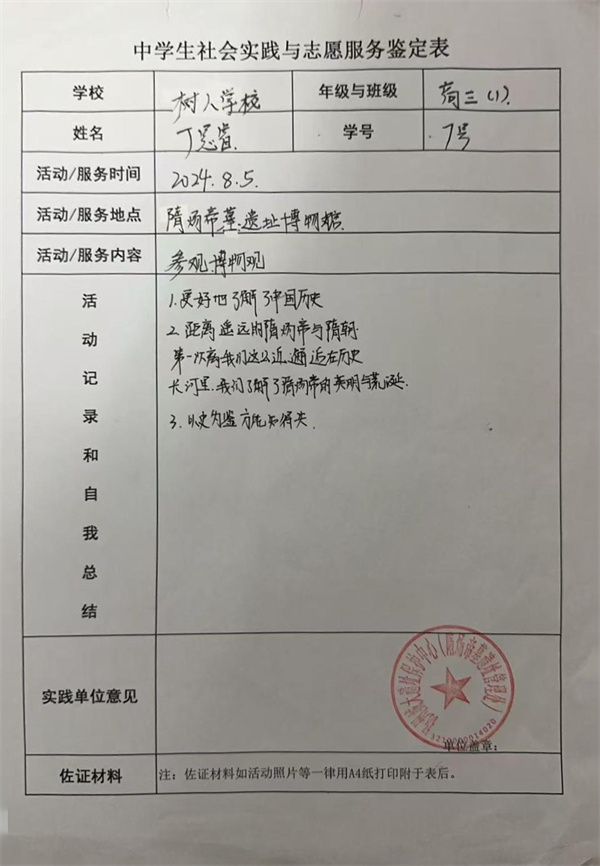 中学生社会实践与志愿服务鉴定表
学校 树人学校 年级与班级 高三(1).
姓名 丁思睿. 学号 7号
活动/服务时间 2024.8.5.
活动/服务地点 隋炀帝墓遗址博物馆
活动/服务内容 参观博物观
活动记录和自我总结
1.更好地了解了中国历史
2.距离遥远的隋炀帝与隋朝
第一次离我们这么近,邂逅在历史
长河里.我们了解了隋炀帝的英明与荒诞.
3.以史为鉴方能知得失.
实践单位意见
大遗址保护中心(隋炀帝墓遗址管理处)
3210000014020
单位盖章:
佐证材料 注:佐证材料如活动照片等一律用A4纸打印附于表后。